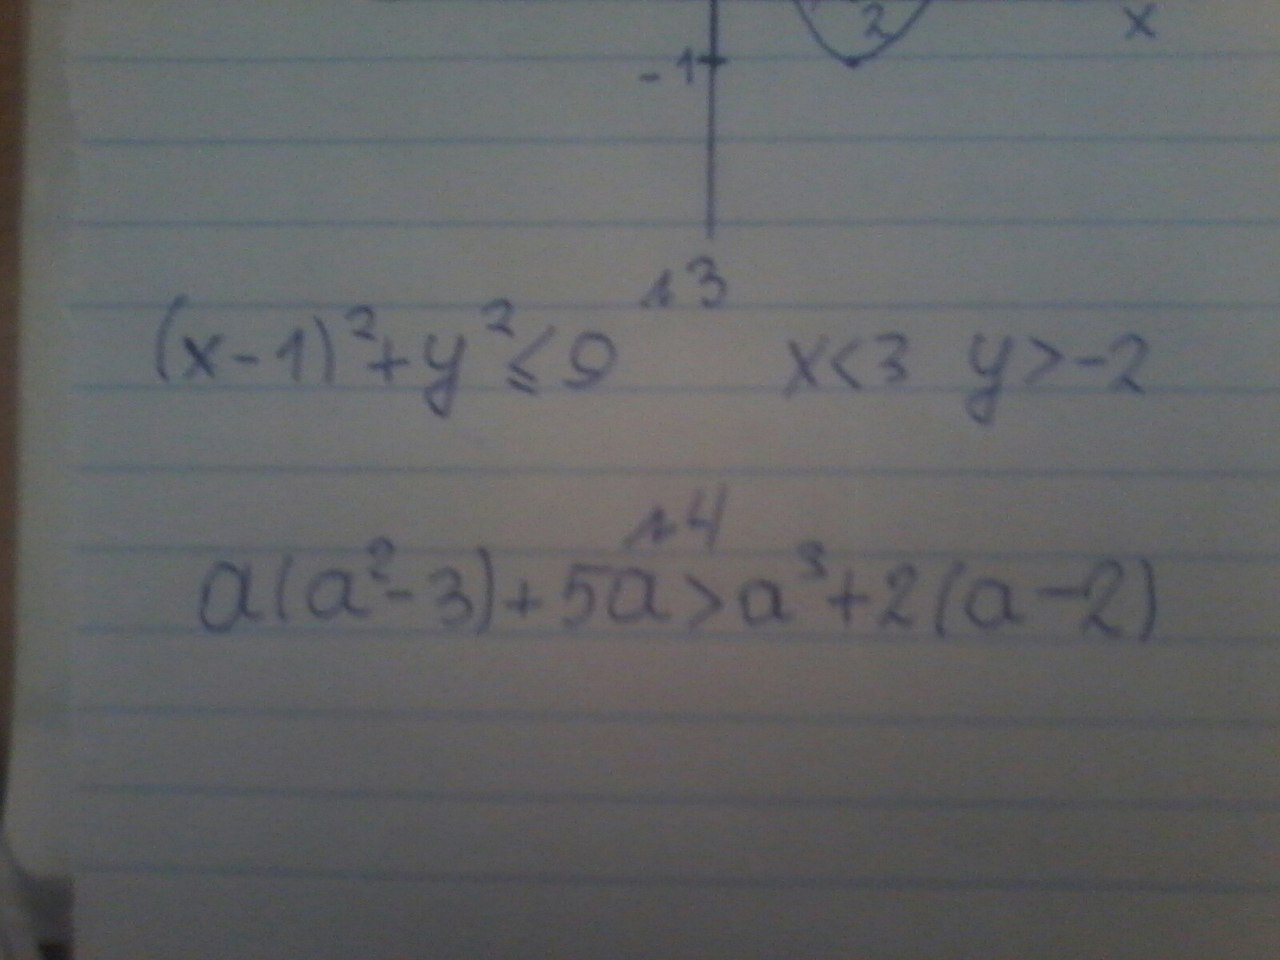 2
x
-1
№3
(x-1)²+y²≤9 x<3 y>-2
№4
a(a²-3)+5a>a³+2(a-2)